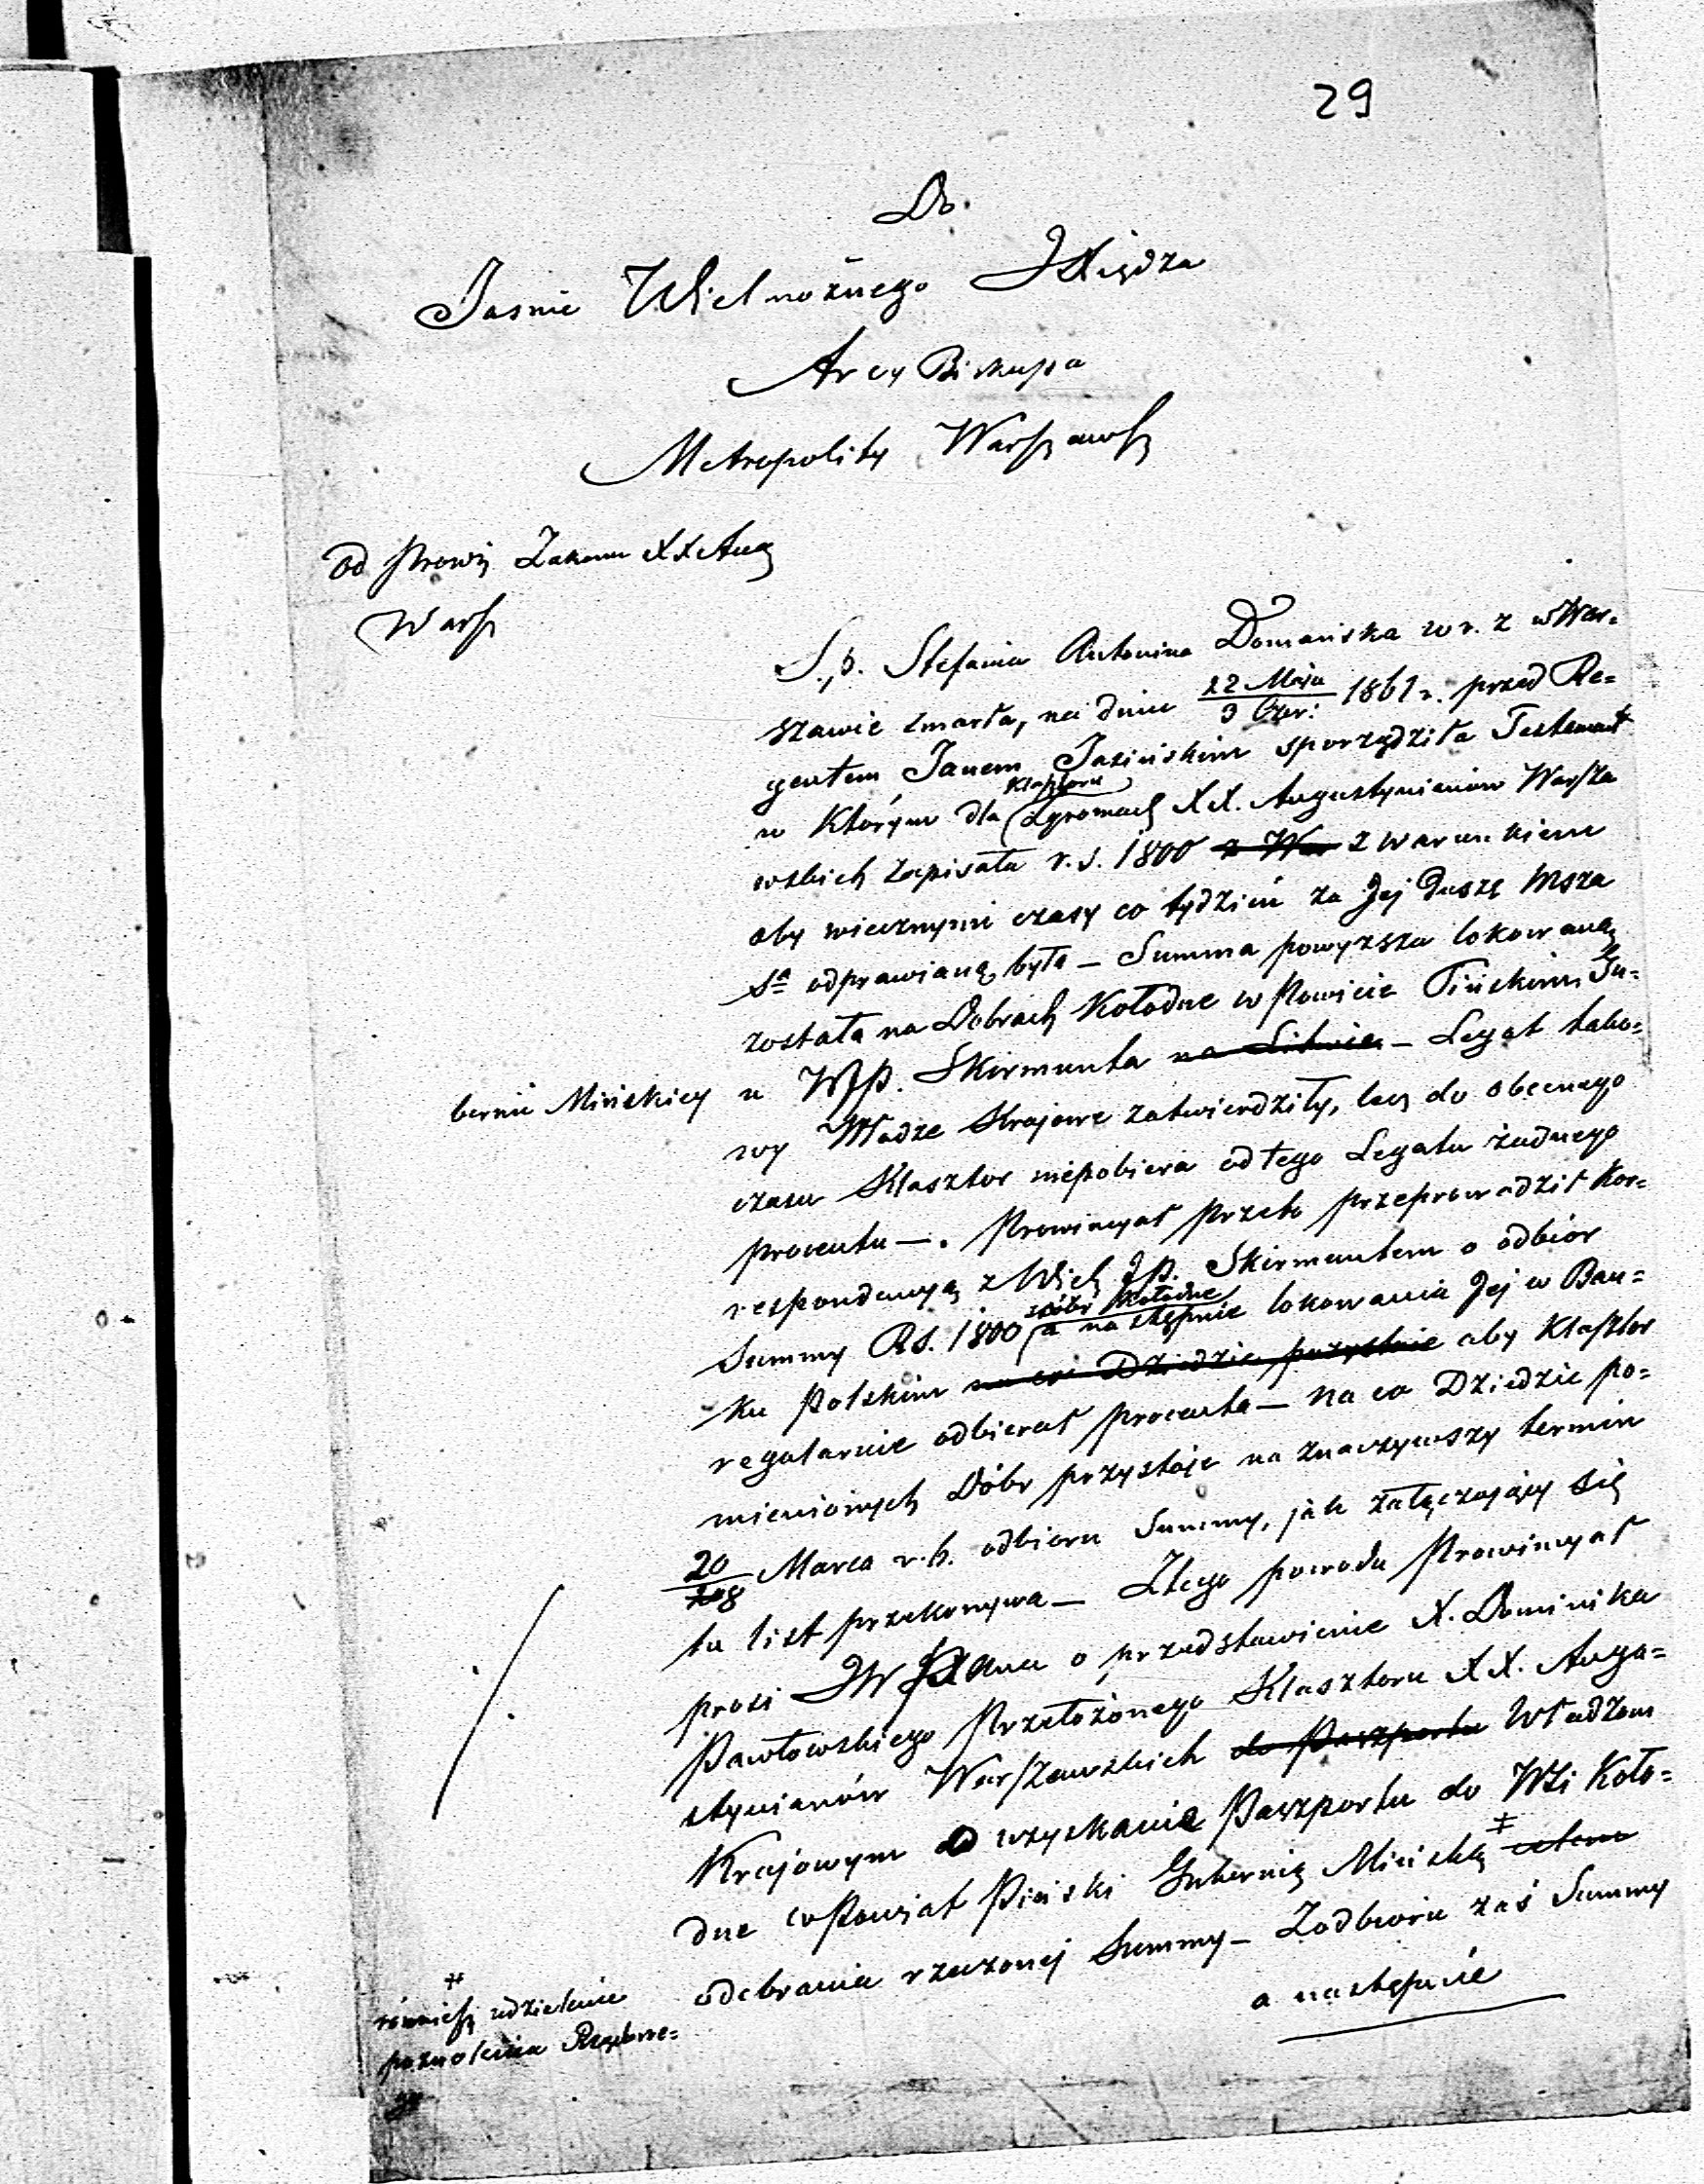 29
Do.
Jasnie Wielmożnego JXiędza
Arcy Biskupa
Metropolity Warszaws
od Prowi Zakonu XX Aug
Warsz
S.p. Stefania Antonina Domańska w r. z w War-
szawie zmarła, na dniu 22 Maja / 3 Czer: 1861 r. przed Re=
gentem Janem Jasińskim sporządziła Testament
Klasztoru
w którym dla Zgromadz XX. Augustynianów Warsza
wskich zapisała r.s. 1800 z War z warunkiem
aby wiecznymi czasy co tydzień za Jej Duszę Msza
Sa odprawianą była – Summa powyższa lokowaną
została na Dobrach Kołodne w Powiecie Pińskim Gu=
bernii Mińskiey u WJP. Skirmunta na Litwie – Legat tako=
wy Władze Krajowe zatwierdziły, lecz do obecnego
czasu Klasztor niepobiera od tego Legatu żadnego
procentu –. Prowincyał przeto przeprowadził kor=
respondencyą z Wiel JP. Skirmuntem o odbiór
z dóbr Kołodne
Summy RS. 1800 a następnie lokowania Jej w Ban=
ku Polskim na co Dziedzic przystaie aby Klasztor
regularnie odbierał procenta – na co Dziedzic po=
mienionych Dóbr przystaje naznaczywszy termin
20/8 Marca r.b. odbioru Summy, jak załączający się
tu list przekonywa – Ztego powodu Prowincyał
prosi JW Pana o przedstawienie X. Dominika
Pawłowskiego Przełożonego Klasztoru XX. Augu=
stynianów Warszawskich do Paszportu Władzom
Krajowym do uzyskania Paszportu do Wsi Koło=
dne w Powiat Piński Gubernią Mińską ‡ celem
odebrania rzeczonej Summy – Zodbioru zaś Summy
a następnie
‡
równiesz udzielenie
pozwolenia